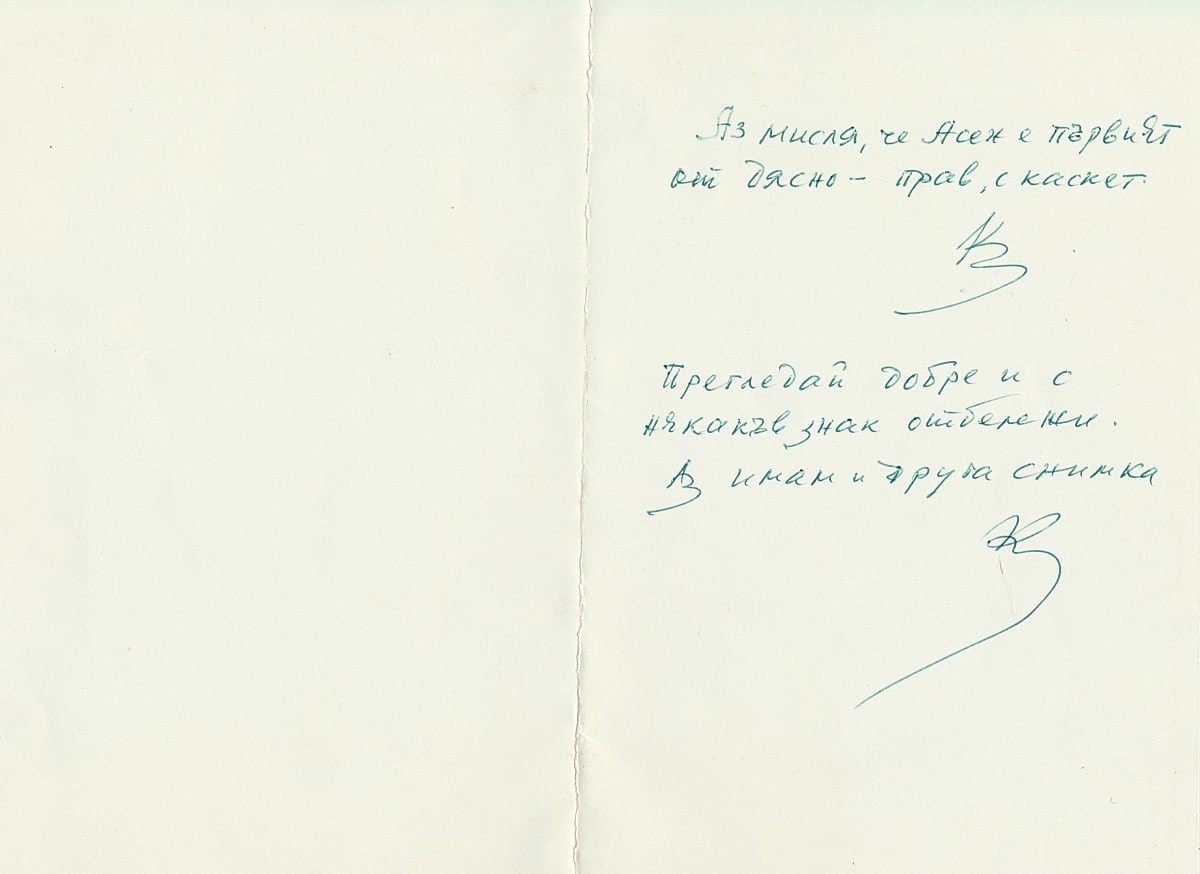 Аз мисля, че Асен е първият
от дясно – прав, с каскет.
Прегледай добре и с
някакъв знак отбележи.
Аз имам и друга снимка